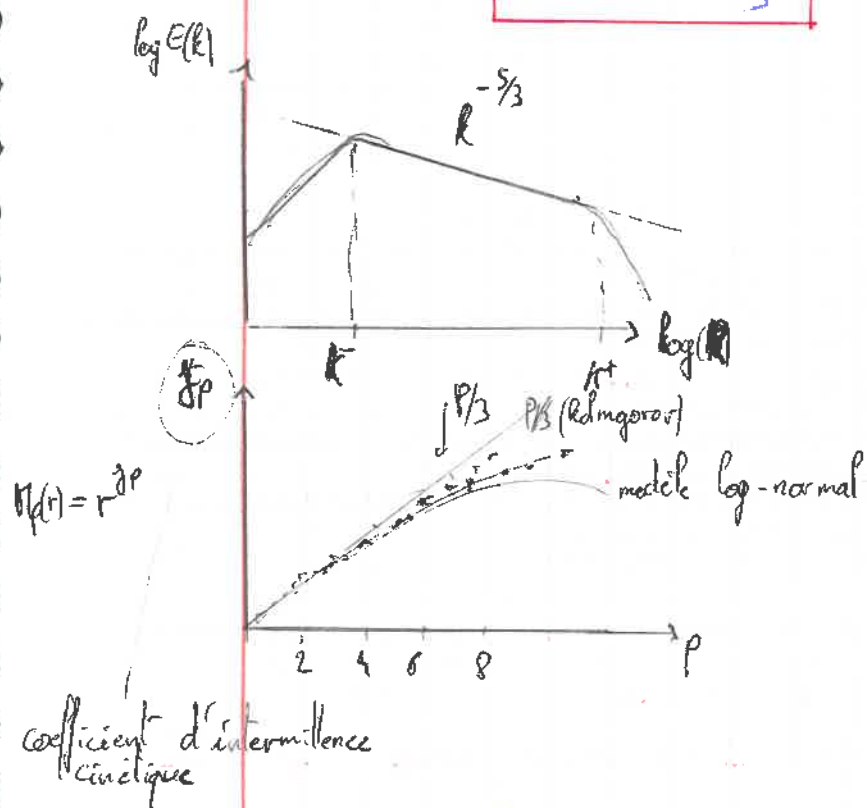 log E(k)
k^{-5/3}
k^-
k^+
log(k)
ζp
p/3
p/3 (kolmogorov)
Mp(r) = r^{ζp}
modèle log-normal
2 4 6 8
p
coefficient d'intermittence
cinétique